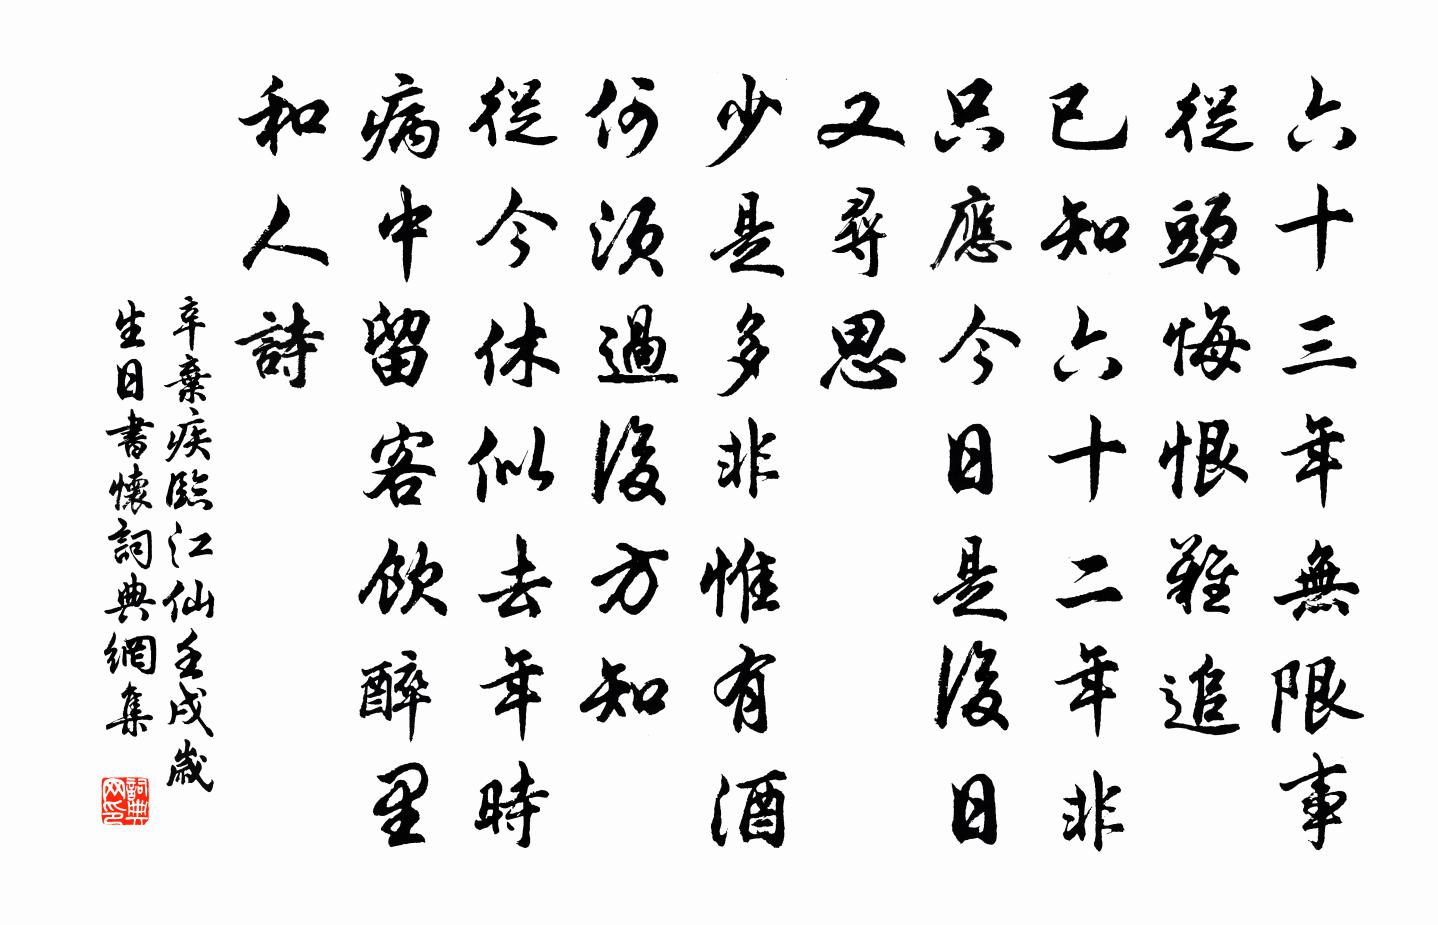 六十三年無限事
從頭悔恨難追
已知六十二年非
只應今日是後日
又尋思
少是多非惟有酒
何須過後方知
從今休似去年時
病中留客飲醉里
和人詩
辛棄疾臨江仙壬戌歲
生日書懷詞典網集
詞典
网印